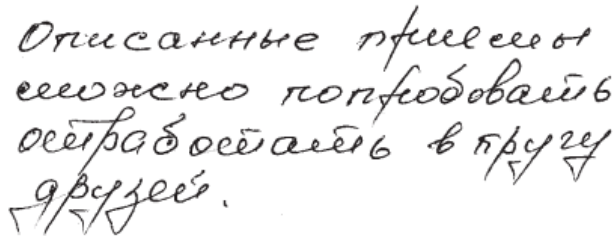 Описанные приемы
можно попробовать
отработать в кругу
друзей.